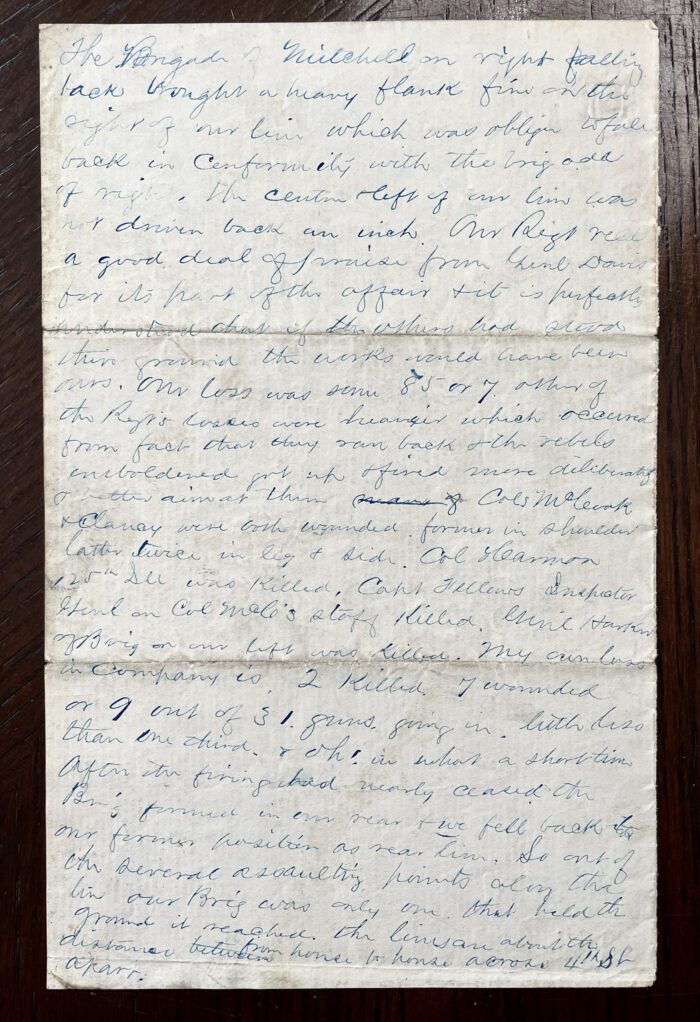 The Brigade of Mitchell on right falling
back brought a heavy flank fire on the
right of our line which was oblige to fall
back in Conformity with the brigade
of right. The centre & left of our line was
not driven back an inch. Our Regt recd
a good deal of praise from Genl Davis
for its part of the affair & it is perfectly
understood that if the others had stood
their ground the works would have been
ours. Our loss was some 85 or 7. other of
the Regts losses were heavier which occured
from fact that they ran back & the rebels
emboldened got up & fired more deliberately
& better aim at them Cols McCook
& Clancy were both wounded former in shoulder
latter twice in leg & side. Col Harmon
125th Ill was Killed, Capt Fellows Inspector
Genl on Col McC's staff Killed. Genl Harker
of Brig on our left was Killed. My own loss
in Company is 2 Killed 7 wounded
or 9 out of 31. guns. going in. little less
than one third. & Oh! in what a short time
After the firing had nearly ceased the
Brig formed in our rear & we fell back to
our former position as rear line. So out of
the several assaulting points along the
line our Brig was only one that held the
ground it reached. The lines are about the
distance between from house to house across 4th St
apart.